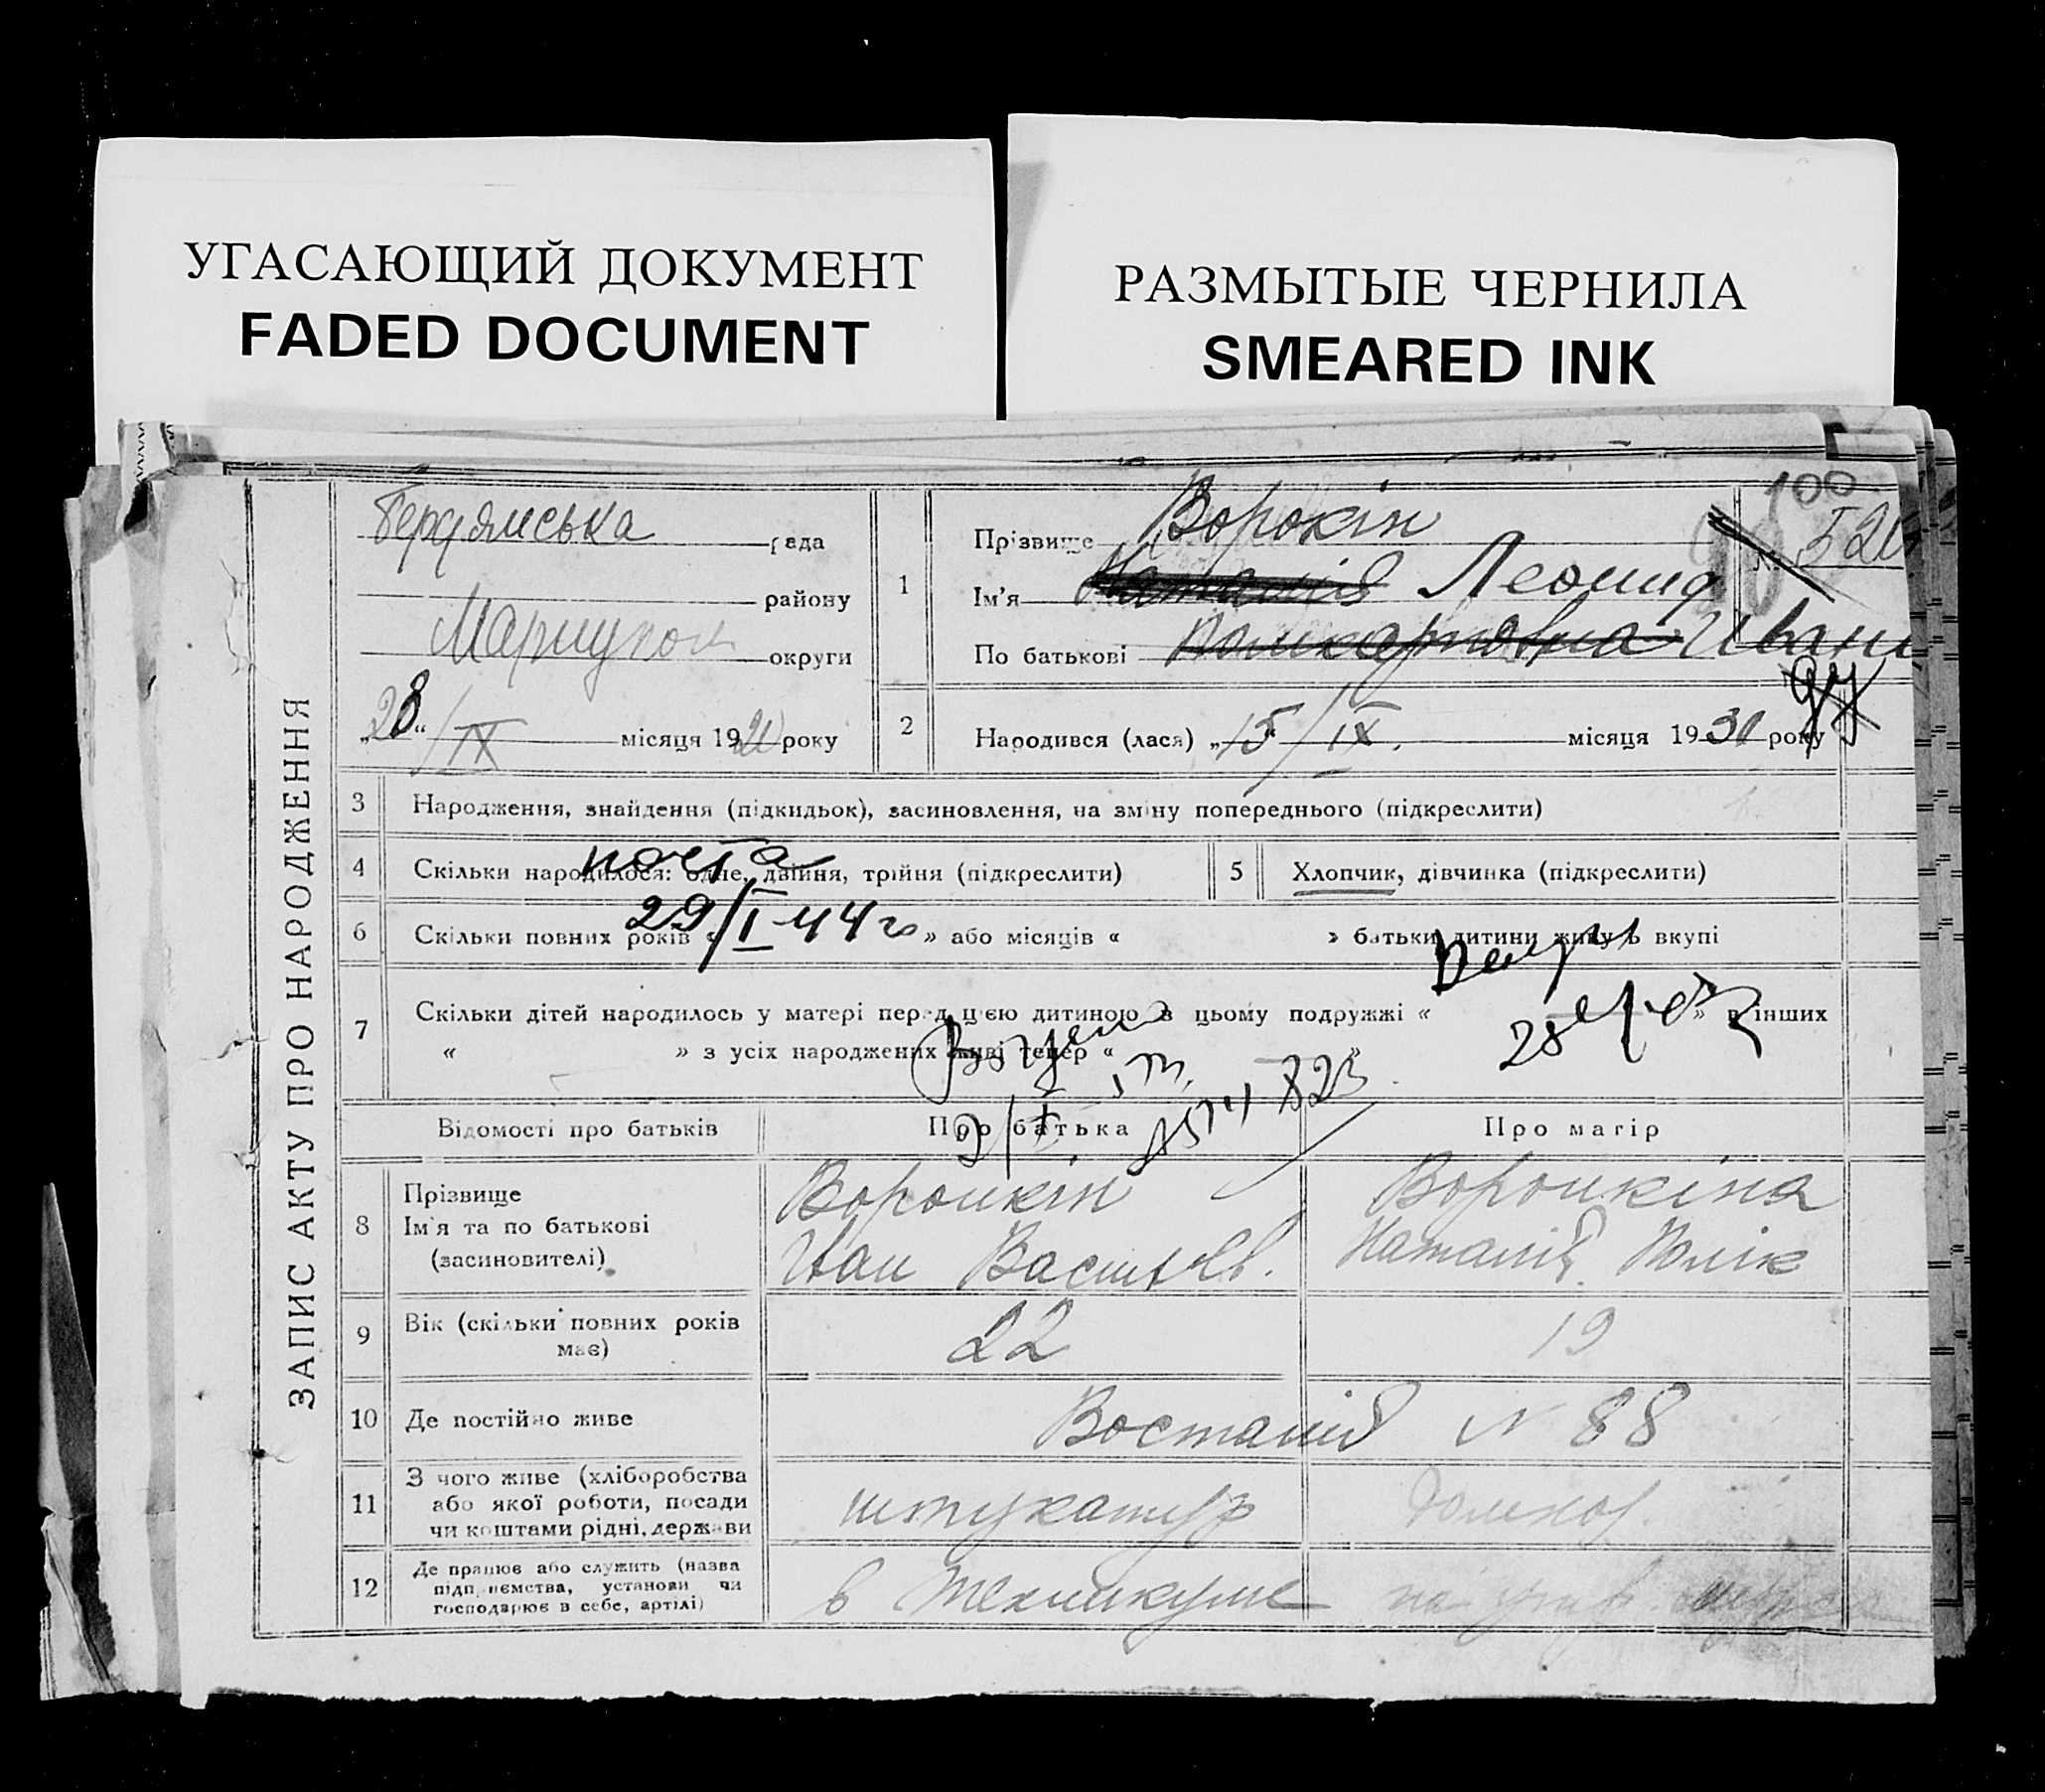 УГАСАЮЩИЙ ДОКУМЕНТ
FADED DOCUMENT
РАЗМЫТЫЕ ЧЕРНИЛА
SMEARED INK
ЗАПИС АКТУ ПРО НАРОДЖЕННЯ
рада
району
Мариупол
округи
„28“ / IX місяця 19 року
100
1 Прізвище Ворокін
Ім'я Наталія Леонид
По батькові Поликарповна Ивани
97
2 Народився (лася) „15“ / IX. місяця 1930 року
3 Народження, знайдення (підкидьок), засиновлення, на зміну попереднього (підкреслити)
4 Скільки народилося: одне, двійня, трійня (підкреслити)
5 Хлопчик, дівчинка (підкреслити)
6 Скільки повних років « » або місяців « » батьки дитини живуть вкупі
29/I-44г
7 Скільки дітей народилось у матері перед цією дитиною в цьому подружжі « » в інших
« » з усіх народжених живі тепер « »
28
Відомості про батьків Про батька Про матір
8 Прізвище
Ім'я та по батькові
(засиновителі)
Воронкін
Иван Васильев.
Воронкіна
Наталія Полік
9 Вік (скільки повних років має) 22 19
10 Де постійно живе Востанія N 88
11 З чого живе (хліборобства
або якої роботи, посади
чи коштами рідні, держави
штукатур домхоз.
12 Де працює або служить (назва
підприємства, установи чи
господарює в себе, артілі)
в техникуме на